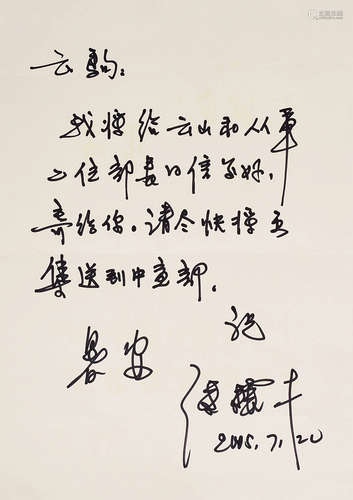 云驹：
我将给云山和从军
二位部长的信写好，
寄给你。请尽快将
集送到中宣部。
祝
暑安
冯骥才
2005.7.20